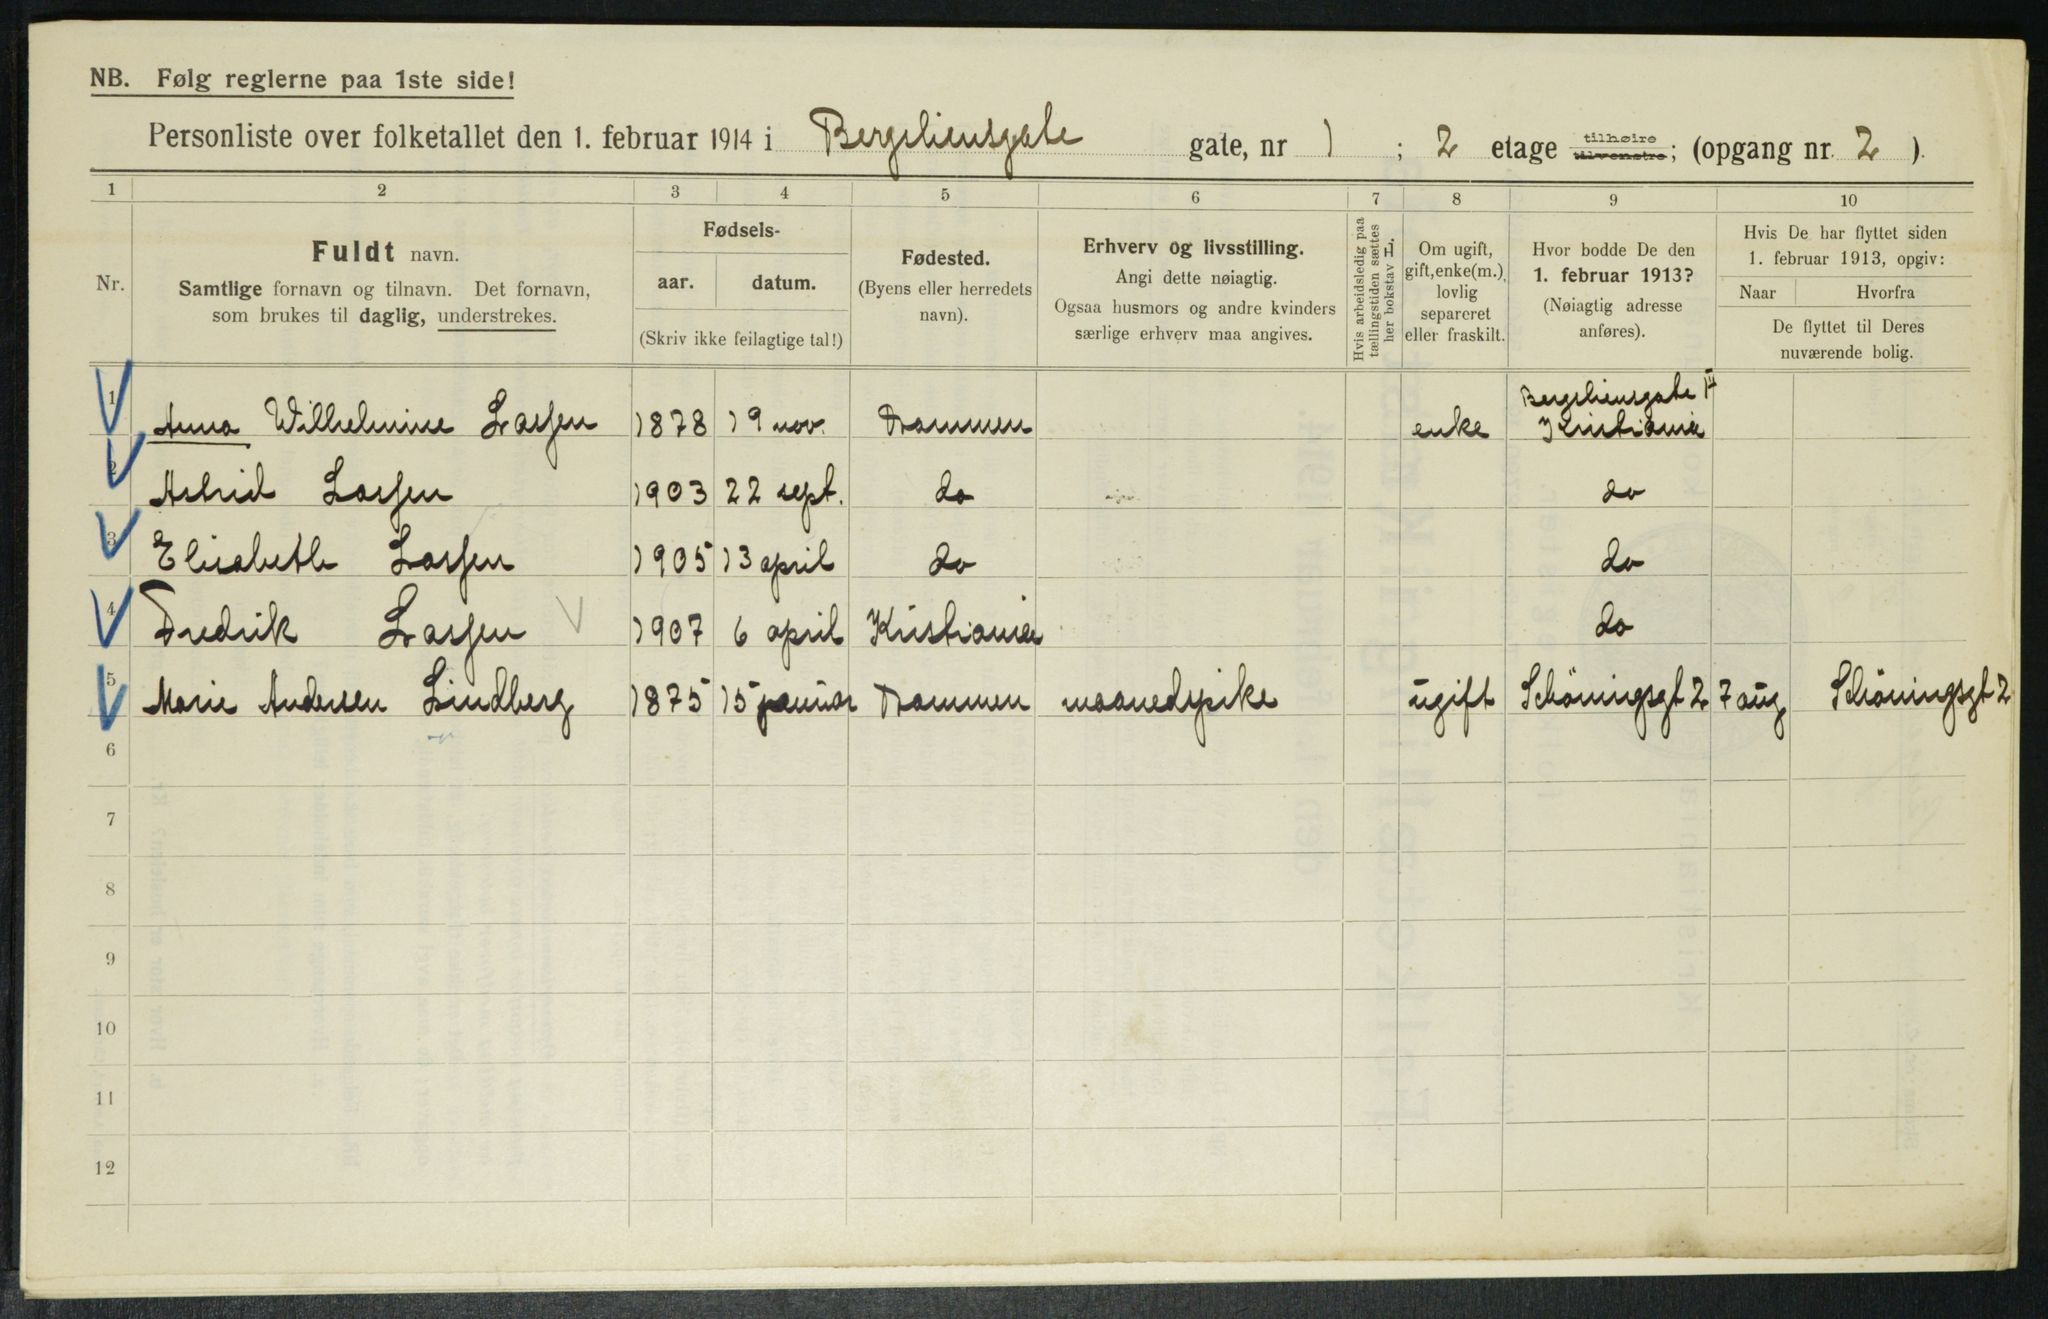 NB. Følg reglerne paa 1ste side!
Personliste over folketallet den 1. februar 1914 i Bergsliensgate gate, nr 1 ; 2 etage tilhøire tilvenstre; (opgang nr. 2 ).
1 2 3 4 5 6 7 8 9 10
Nr.
Fuldt navn.
Samtlige fornavn og tilnavn. Det fornavn,
som brukes til daglig, understrekes.
Fødsels-
aar. datum.
(Skriv ikke feilagtige tal!)
Fødested.
(Byens eller herredets
navn).
Erhverv og livsstilling.
Angi dette nøiagtig.
Ogsaa husmors og andre kvinders
særlige erhverv maa angives.
Hvis arbeidsledig paa
tællingstiden sættes
her bokstav L.
Om ugift,
gift, enke(m.),
lovlig
separeret
eller fraskilt.
Hvor bodde De den
1. februar 1913?
(Nøiagtig adresse
anføres).
Hvis De har flyttet siden
1. februar 1913, opgiv:
Naar Hvorfra
De flyttet til Deres
nuværende bolig.
1 Anna Wilhelmine Lassen 1878 19 nov. Drammen enke Bergsliensgate 1 II
Kristiania
2 Astrid Lassen 1903 22 sept. do do
3 Elisabeth Lassen 1905 13 april do do
4 Fredrik Lassen 1907 6 april Kristiania do
5 Marie Andersen Lindberg 1875 15 januar Drammen maanedspike ugift Schöningsgt 2 7 aug Schöningsgt 2
6
7
8
9
10
11
12